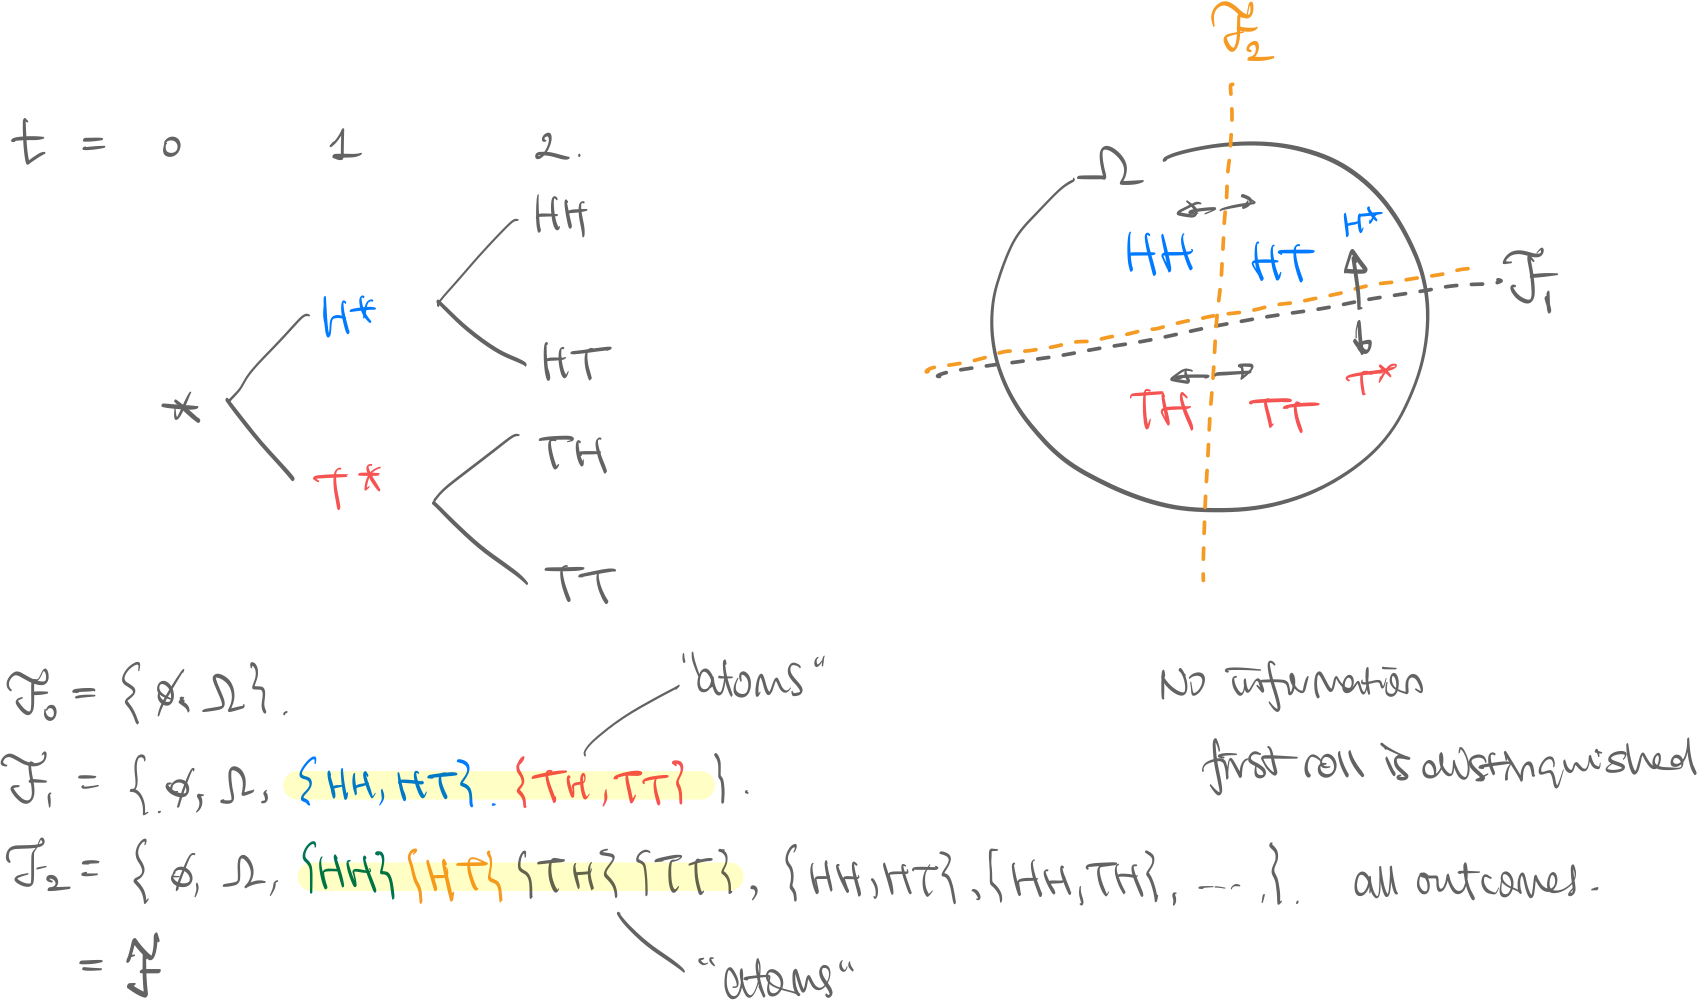 t = 0 1 2.
HH
H*
HT
*
TH
T*
TT
ℱ₂
Ω
H*
HH HT
ℱ₁
T*
TH TT
"atoms"
ℱ₀ = { ∅, Ω }. No information
ℱ₁ = { ∅, Ω, {HH, HT}. {TH, TT} }. first roll is distinguished
ℱ₂ = { ∅, Ω, {HH} {HT} {TH} {TT}, {HH, HT}, {HH, TH}, ... }. all outcomes.
= ℱ
"atoms"